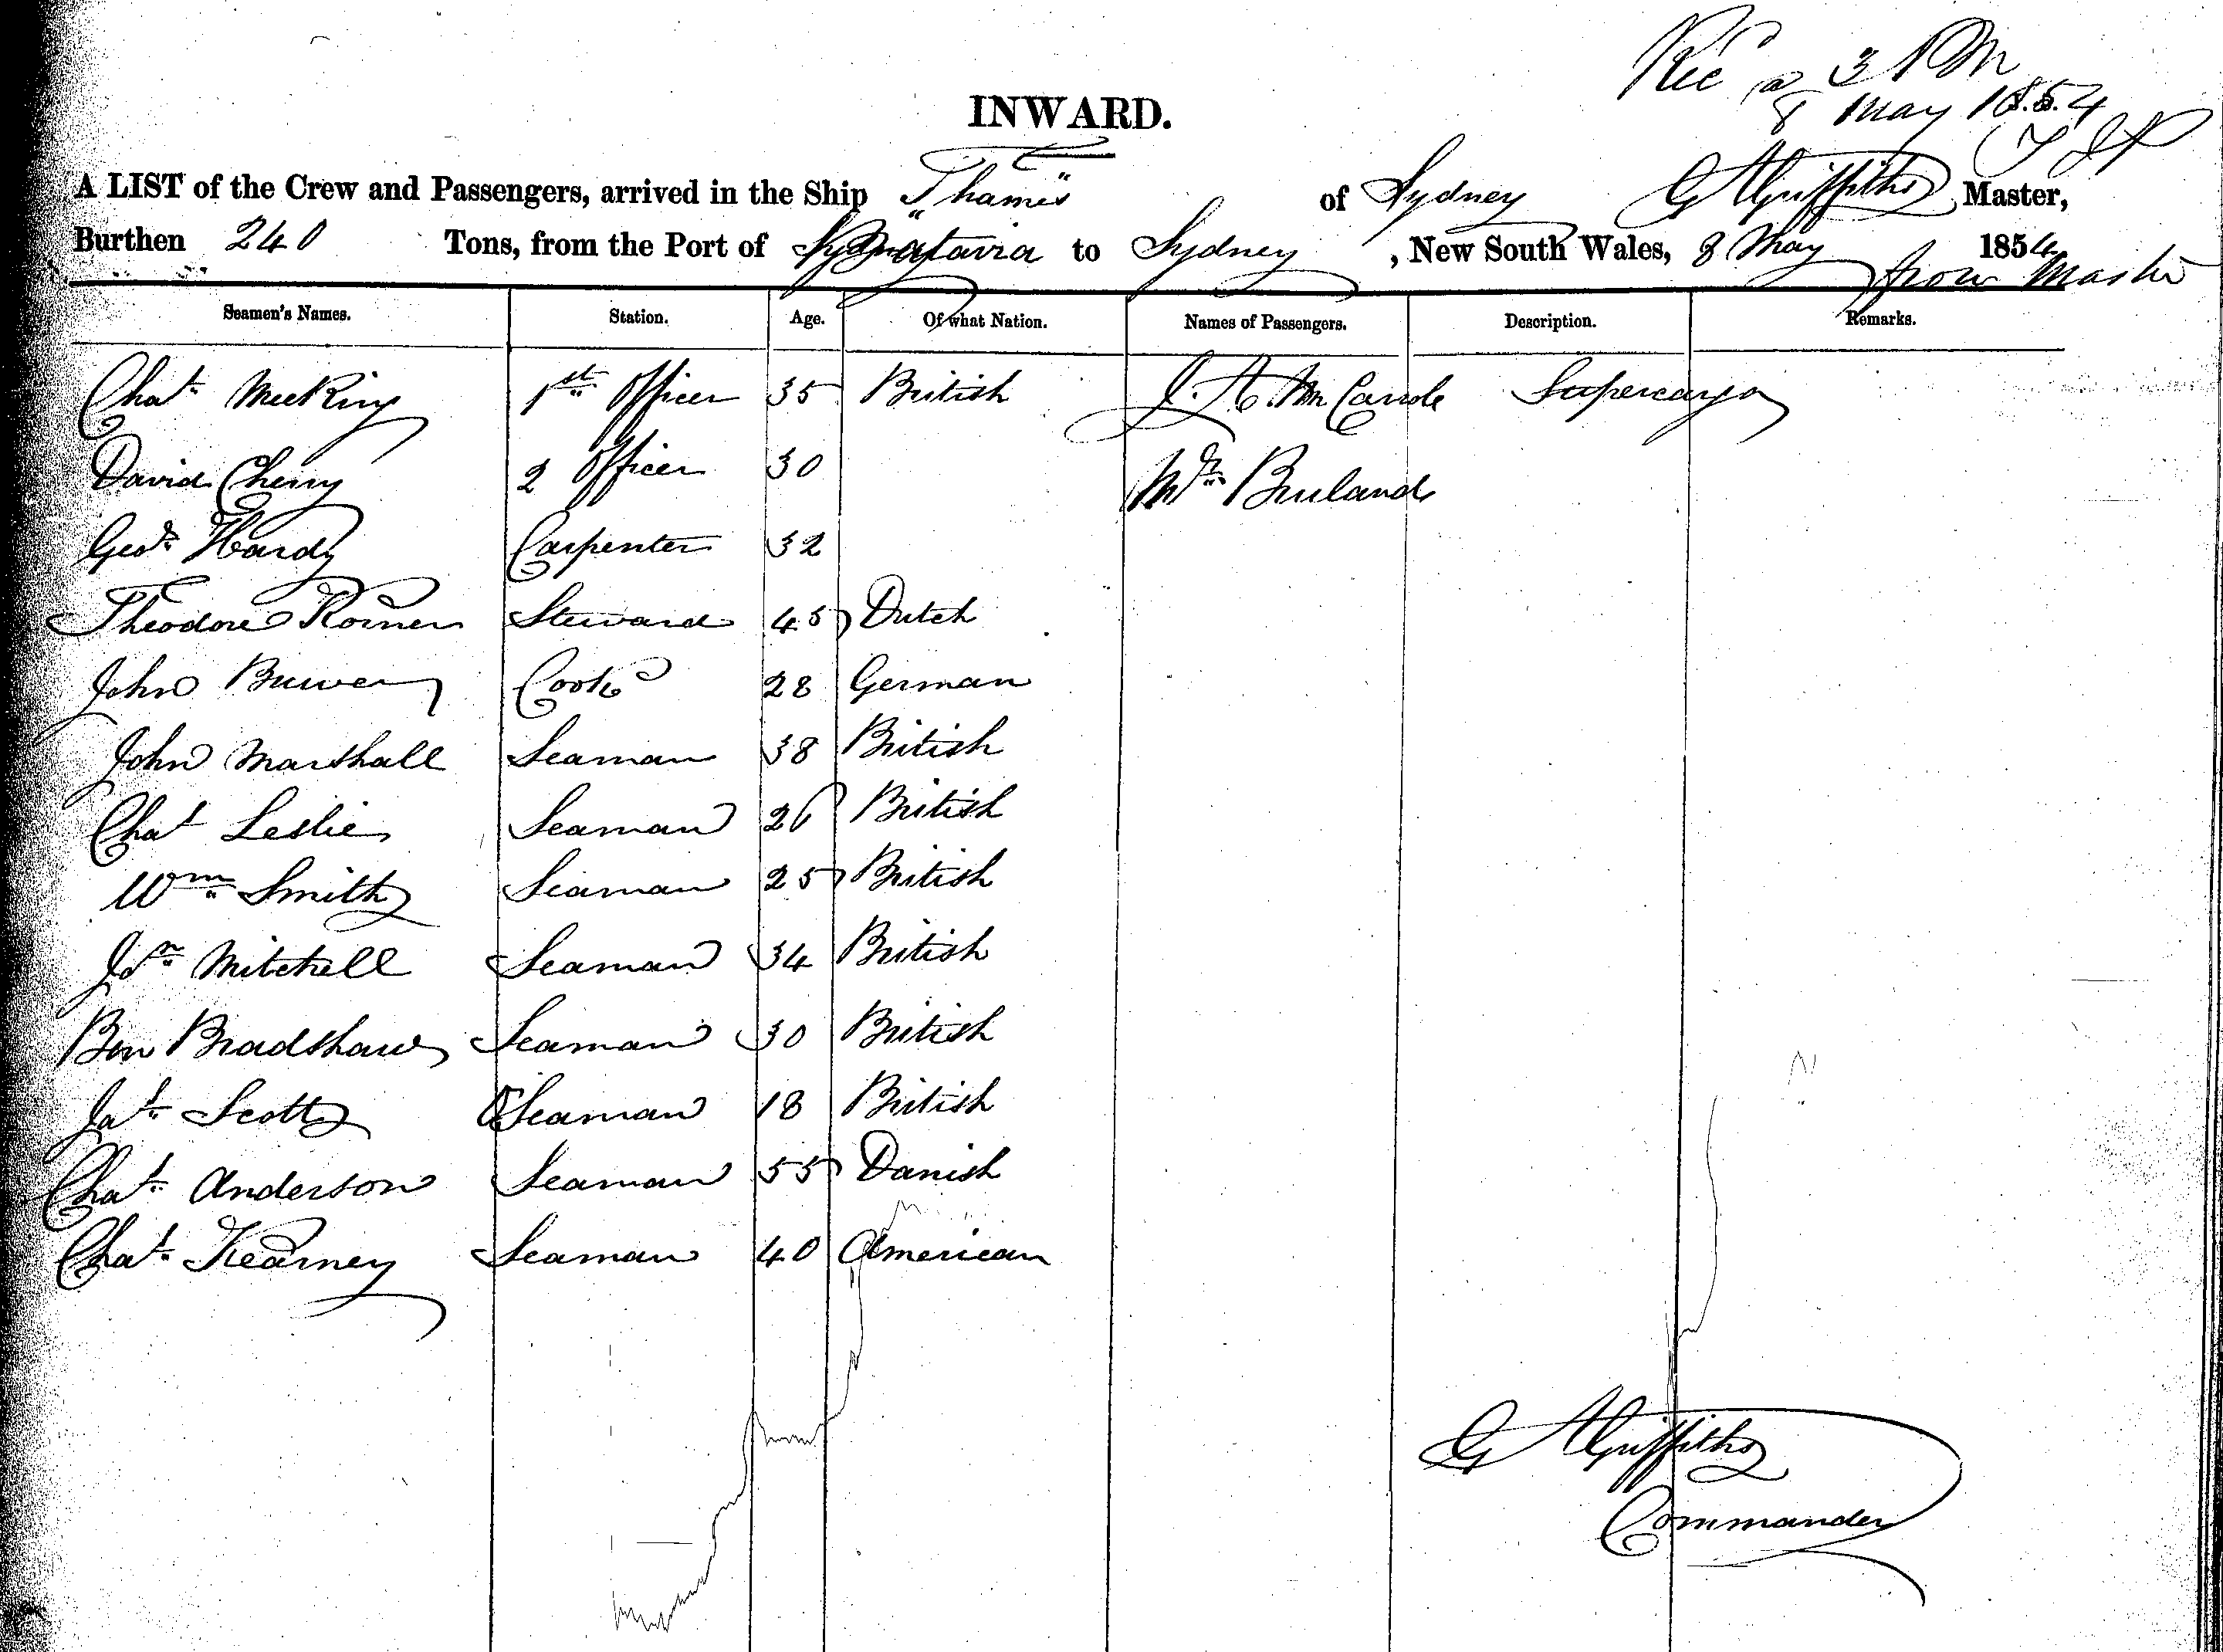 Rec @ 3 PM
8 May 1854
INWARD.
A LIST of the Crew and Passengers, arrived in the Ship "Thames" of Sydney G A Griffiths Master,
Burthen 240 Tons, from the Port of Batavia to Sydney, New South Wales, 8 May 1854
from Master
Seamen's Names. Station. Age. Of what Nation. Names of Passengers. Description. Remarks.
Chas. McKing 1st Officer 35 British J. A. Supercargo
David Cherry 2 Officer 30 Mr.
Geo. Hardy Carpenter 32
Theodore Steward 45 Dutch
John Cook 28 German
John Marshall Seaman 38 British
Chas Leslie Seaman 26 British
Wm Smith Seaman 25 British
Jno. Mitchell Seaman 34 British
Ben Bradshaw Seaman 30 British
Jas. Scott Seaman 18 British
Chas. Anderson Seaman 55 Danish
Chas. Kearney Seaman 40 American
G A Griffiths
Commander